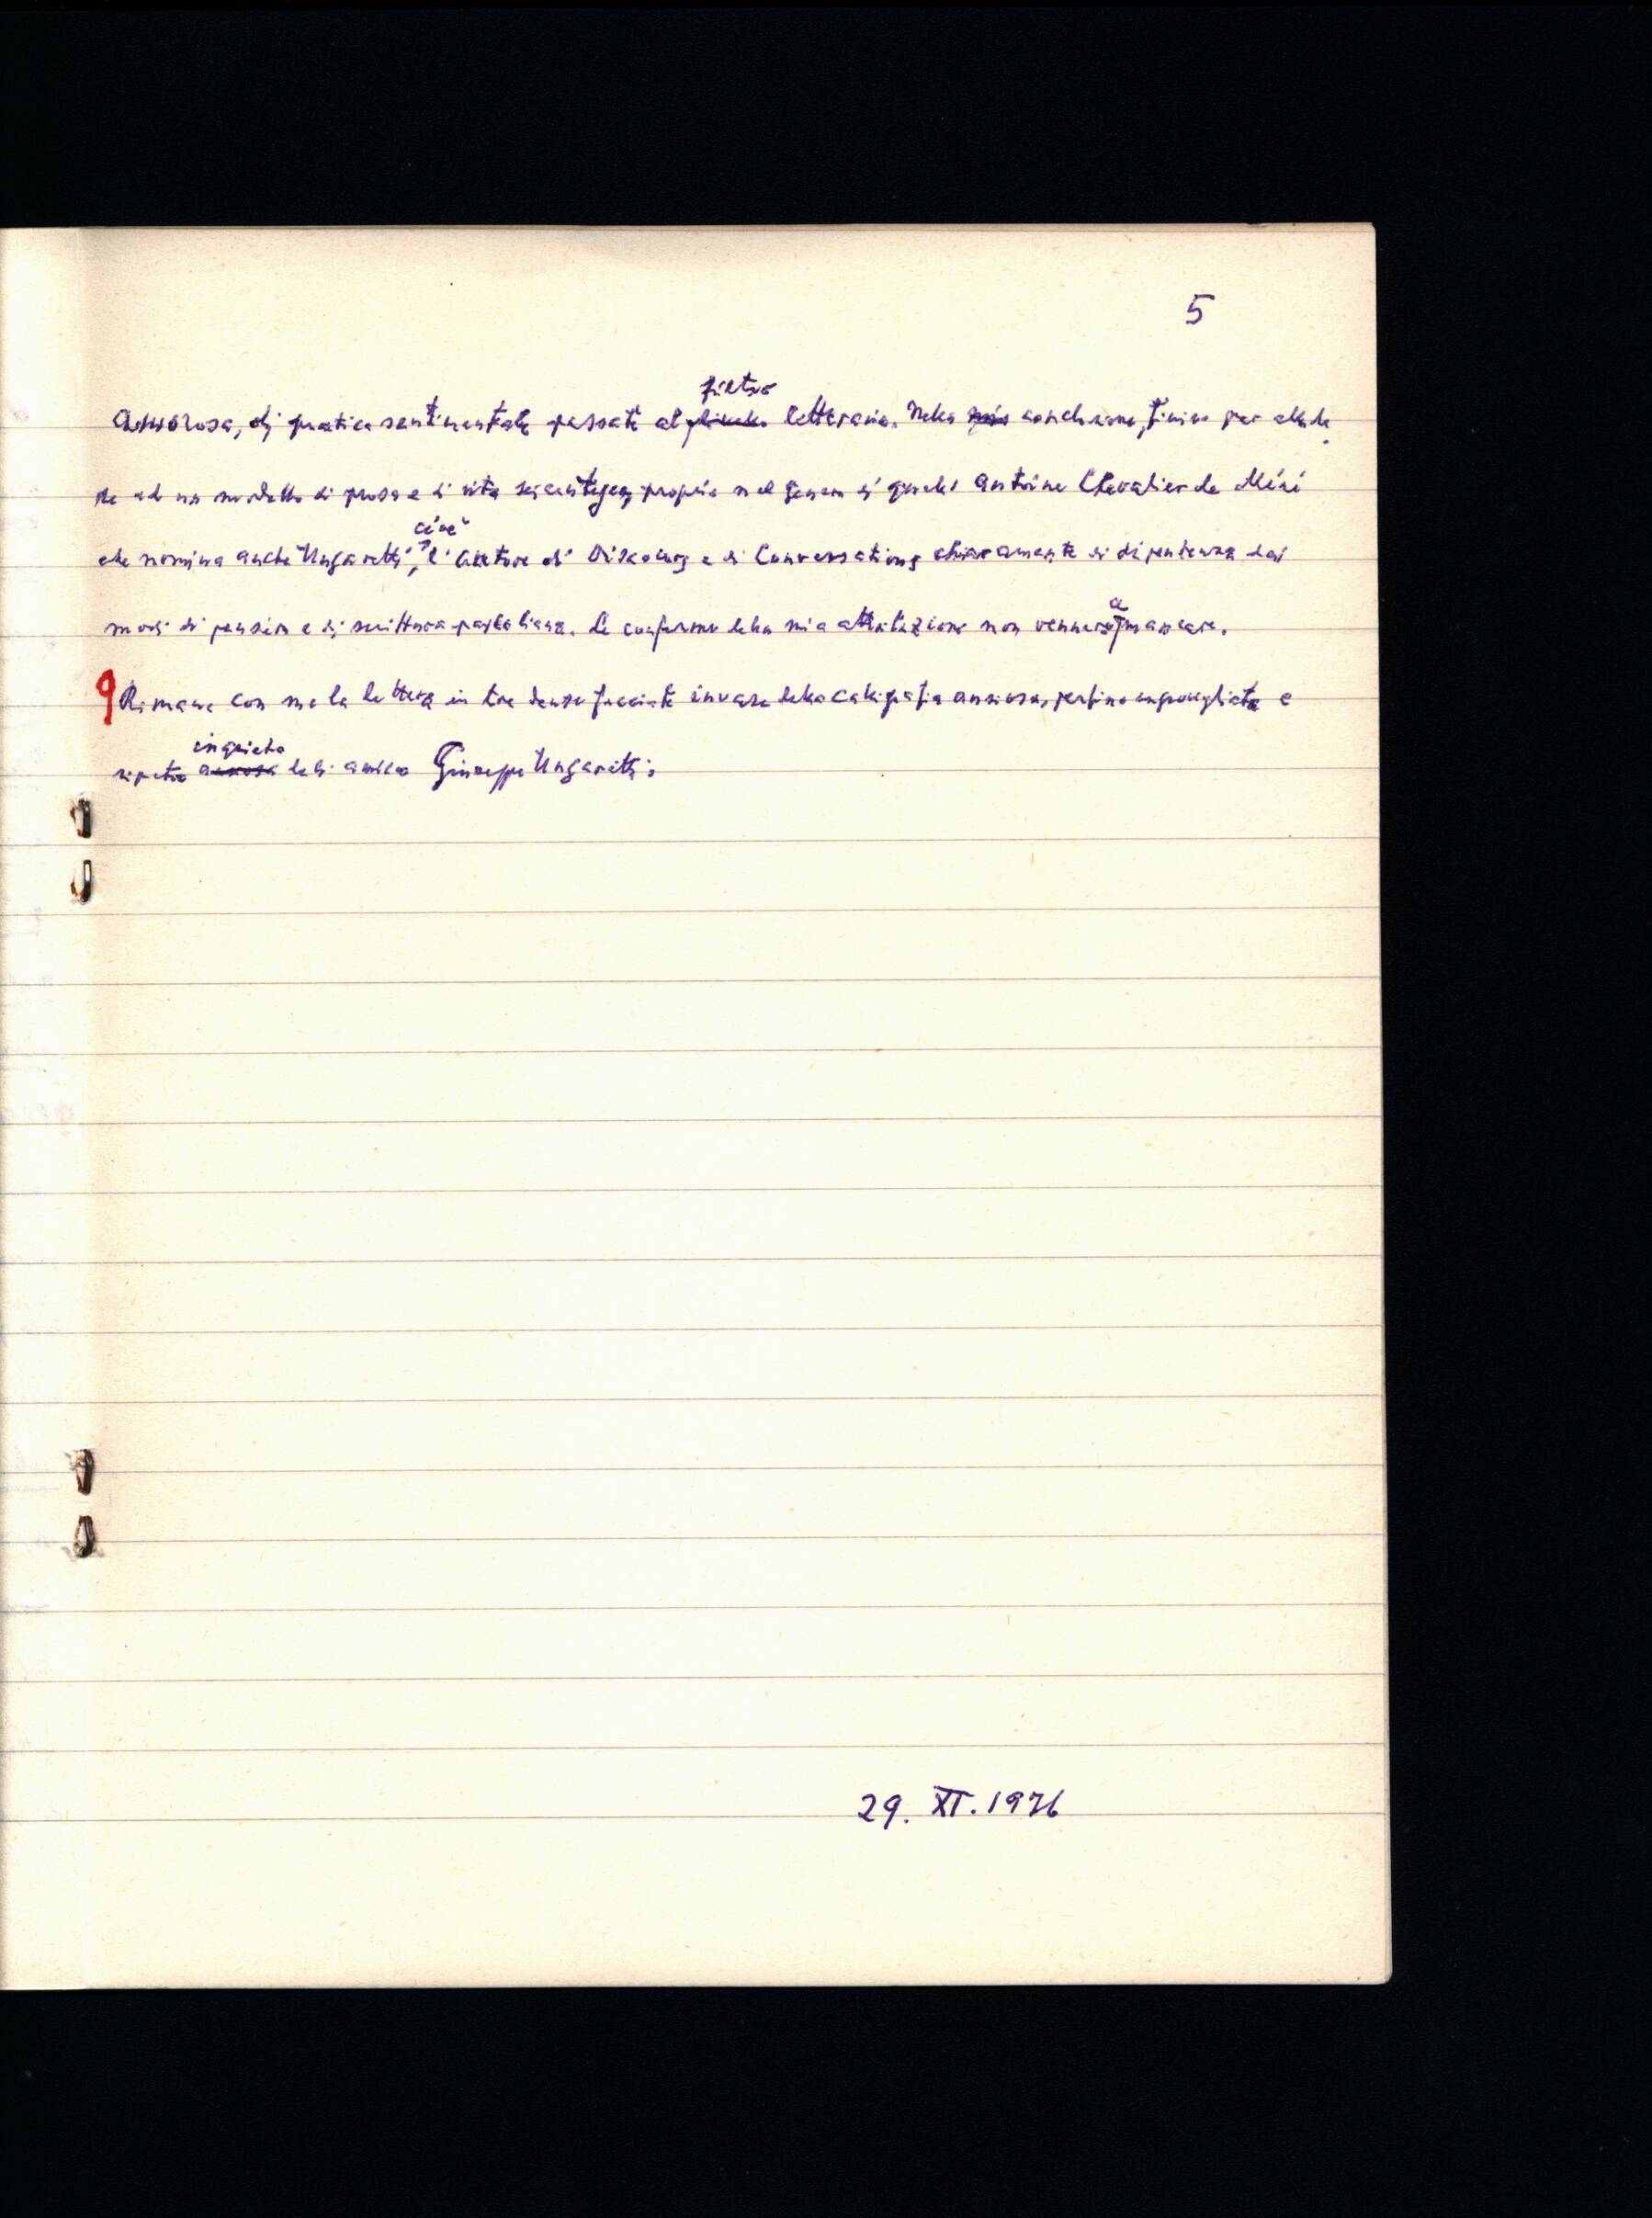 5
amorosa, di pratica sentimentale passati al filtro letterario. Nella conclusione, finivo per allude
re ad un modello di prosa e di vita secentesca, proprio nel genere di quello Antoine Chevalier de Méré
che nomina anche Ungaretti, cioè l'autore di Discours e di Conversations chiaramente di dipendenza dai
modi di pensiero e di scrittura pascaliana. Le conferme della mia attribuzione non vennero a mancare.
Rimane con me la lettera in tre dense facciate invase dalla calligrafia ansiosa, perfino e
ripeto inquieta dell'amico Giuseppe Ungaretti.
29. XI. 1976